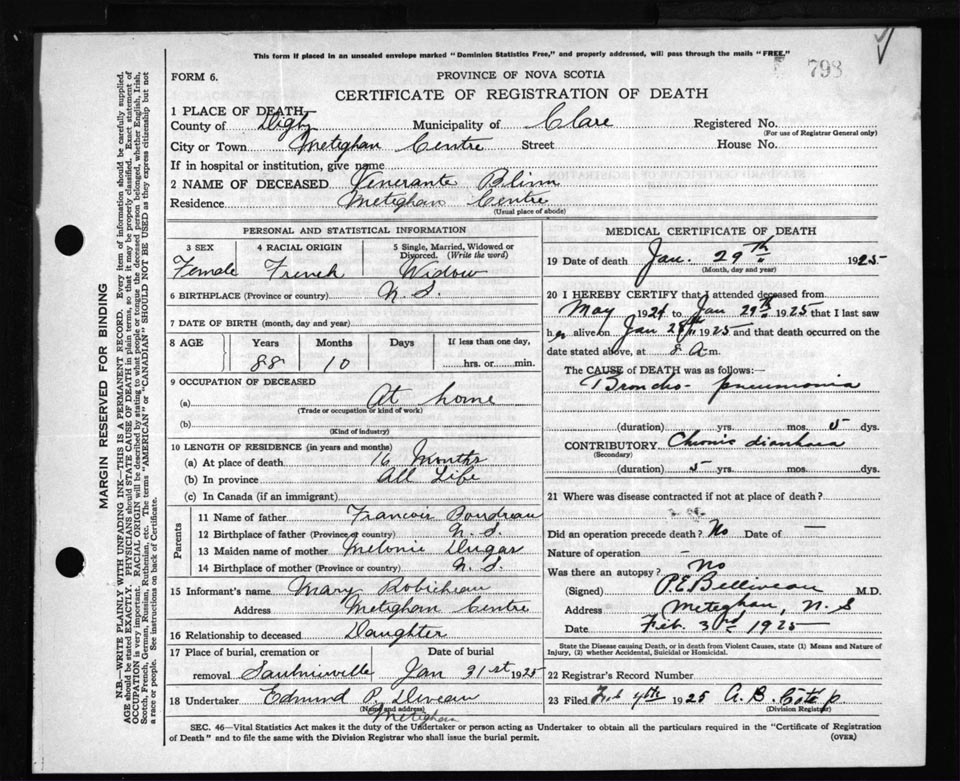 This form if placed in an unsealed envelope marked "Dominion Statistics Free," and properly addressed, will pass through the mails "FREE."
798
FORM 6.
PROVINCE OF NOVA SCOTIA
CERTIFICATE OF REGISTRATION OF DEATH
1 PLACE OF DEATH—
County of Digby Municipality of Clare Registered No.
(For use of Registrar General only)
City or Town Meteghan Centre Street House No.
If in hospital or institution, give name
2 NAME OF DECEASED Venerante Blinn
Residence Meteghan Centre
(Usual place of abode)
PERSONAL AND STATISTICAL INFORMATION
3 SEX 4 RACIAL ORIGIN 5 Single, Married, Widowed or Divorced. (Write the word)
Female French Widow
6 BIRTHPLACE (Province or country) N. S.
7 DATE OF BIRTH (month, day and year)
8 AGE Years Months Days If less than one day,
88 10 hrs. or min.
9 OCCUPATION OF DECEASED
(a) At home
(Trade or occupation or kind of work)
(b)
(Kind of industry)
10 LENGTH OF RESIDENCE (in years and months)
(a) At place of death 16 Months
(b) In province All Life
(c) In Canada (if an immigrant)
Parents
11 Name of father Francois Boudreau
12 Birthplace of father (Province or country) N. S.
13 Maiden name of mother Melonie Dugas
14 Birthplace of mother (Province or country) N. S.
15 Informant's name Mary Robicheau
Address Meteghan Centre
16 Relationship to deceased Daughter
17 Place of burial, cremation or removal Date of burial
Saulnierville Jan 31st 1925
18 Undertaker Edmund P. Deveau
(Name and address)
Meteghan
MEDICAL CERTIFICATE OF DEATH
19 Date of death Jan. 29th 1925
(Month, day and year)
20 I HEREBY CERTIFY that I attended deceased from
May 1924 to Jan 29th 1925 that I last saw
her alive on Jan 28th 1925 and that death occurred on
date stated above, at 8 A m.
The CAUSE of DEATH was as follows:—
Broncho- pneumonia
(duration) yrs. mos. 5 dys.
CONTRIBUTORY Chronic diarrhoea
(Secondary)
(duration) 5 yrs. mos. dys.
21 Where was disease contracted if not at place of death?
Did an operation precede death? No Date of —
Nature of operation —
Was there an autopsy? No
(Signed) P.E. Belliveau M.D.
Address Meteghan, N. S
Date Feb. 3rd 1925
State the Disease causing Death, or in death from Violent Causes, state (1) Means and Nature of Injury, (2) whether Accidental, Suicidal or Homicidal.
22 Registrar's Record Number
23 Filed Feb 4th 1925 A. B.
(Division Registrar)
SEC. 46—Vital Statistics Act makes it the duty of the Undertaker or person acting as Undertaker to obtain all the particulars required in the "Certificate of Registration
of Death" and to file the same with the Division Registrar who shall issue the burial permit.
(OVER)
MARGIN RESERVED FOR BINDING
N.B.—WRITE PLAINLY WITH UNFADING INK—THIS IS A PERMANENT RECORD. Every item of information should be carefully supplied.
AGE should be stated EXACTLY. PHYSICIANS should STATE CAUSE OF DEATH in plain terms, so that it may be properly classified. Exact statement of
OCCUPATION is very important. RACIAL ORIGIN will be described by stating to what people or tongue the deceased person belonged, whether English, Irish,
Scotch, French, German, Russian, Ruthenian, etc. The terms "AMERICAN" or "CANADIAN" SHOULD NOT BE USED as they express citizenship but not
a race or people. See instructions on back of Certificate.